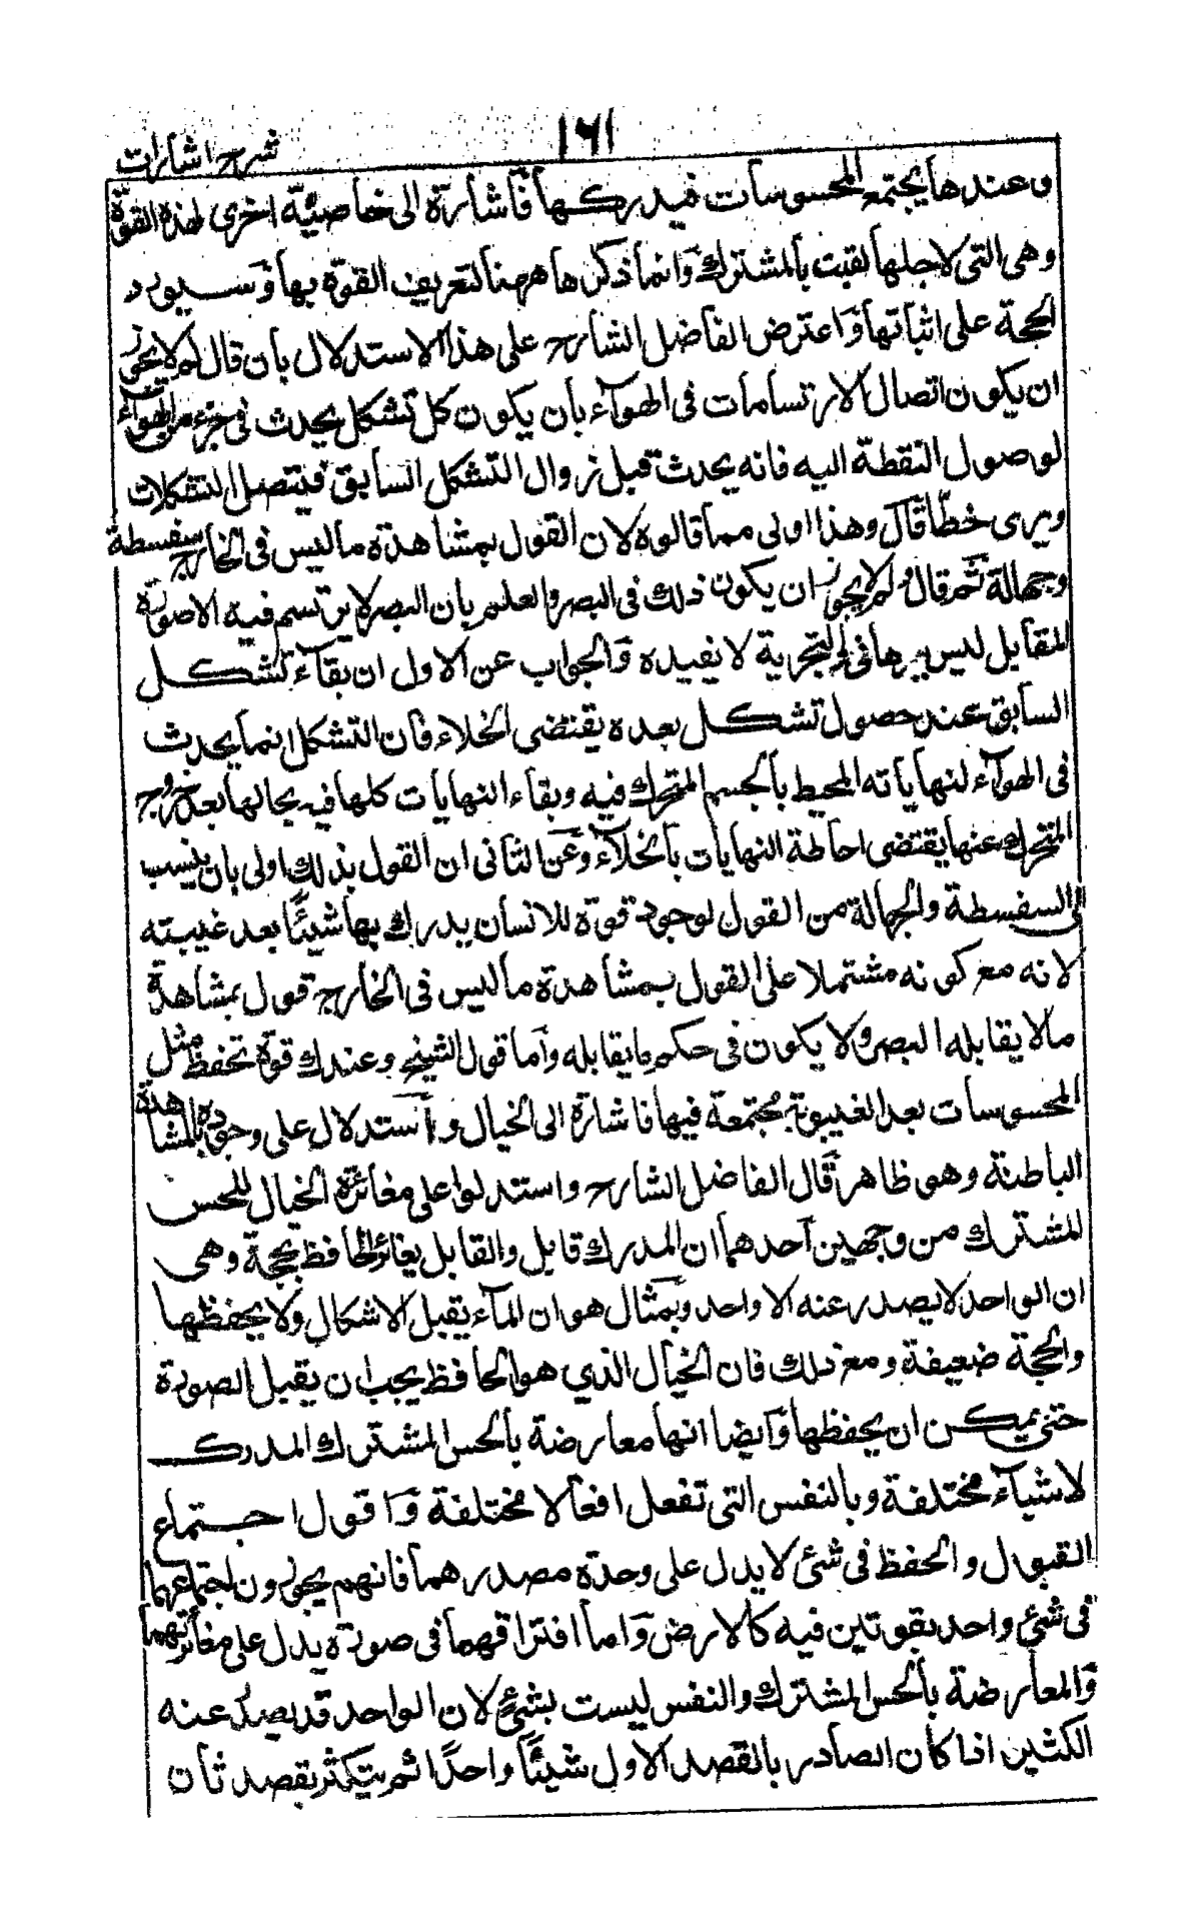 ١٦١
شرح اشارات
وعندها يجتمع المحسوسات فيدركها فأشارة الى خاصيّة اخرى لهذه القوّة
وهى التى لاجلها لقبت بالمشترك وانما ذكرها ههنا لتعريف القوة بها وسيورد
الحجة على اثباتها واعترض الفاضل الشارح على هذا الاستدلال بان قال لم لا يجوز
ان يكون اتصال الارتسامات فى الهوآء بان يكون كل تشكل يحدث فى جزء من الهوآء
لوصول النقطة اليه فانه يحدث قبل زوال التشكل السابق فيتصل التشكلات
ويرى خطّا قال وهذا اولى مما قالوه لان القول بمشاهدة ما ليس فى الخارج سفسطة
وجهالة ثم قال ولم لا يجوز ان يكون ذلك فى البصر والعلم بان البصر لا يرتسم فيه الا صورة
المقابل ليس ببرهانى والتجربة لا تفيده والجواب عن الاول ان بقآء تشكل
السابق عند حصول تشكل بعده يقتضى الخلاء فان التشكل انما يحدث
فى الهوآء لنهاياته المحيط بالجسم المتحرك فيه وبقاء النهايات كلها فيه بحالها بعد خروج
المتحرك عنها يقتضى احاطة النهايات بالخلآء وعن الثانى ان القول بذلك اولى بان ينسب
الى السفسطة والجهالة من القول لوجود قوة للانسان يدرك بها شيئًا بعد غيبته
لانه مع كونه مشتملا على القول بمشاهدة ما ليس فى الخارج قول بمشاهدة
ما لا يقابله البصر ولا يكون فى حكم ما يقابله وأما قول الشيخ وعندك قوة تحفظ مثل
المحسوسات بعد الغيبوبة مجتمعة فيها فاشارة الى الخيال وأستدلال على وجوده بالمشاهدة
الباطنة وهو ظاهر قال الفاضل الشارح واستدلوا على مغائرة الخيال للحس
المشترك من وجهين آحدهما ان المدرك قابل والقابل يغائر الحافظ بحجة وهى
ان الواحد لا يصدر عنه الا واحد وبمثال هو ان المآء يقبل الاشكال ولا يحفظها
والحجة ضعيفة ومع ذلك فان الخيال الذي هو الحافظ يجب ان يقبل الصورة
حتى يمكن ان يحفظها وآيضا انها معارضة بالحس المشترك المدرك
لاشيآء مختلفة وبالنفس التى تفعل افعالا مختلفة وآقول اجتماع
القبول والحفظ فى شئ لا يدل على وحدة مصدرهما فانهم يجوزون اجتماعهما
فى شئ واحد بقوتين فيه كالارض وآما افتراقهما فى صورة يدل على مغائرتهما
والمعارضة بالحس المشترك والنفس ليست بشئ لان الواحد قد يصدر عنه
الكثير اذا كان الصادر بالقصد الاول شيئًا واحدًا ثم يتكثر بقصد ثان